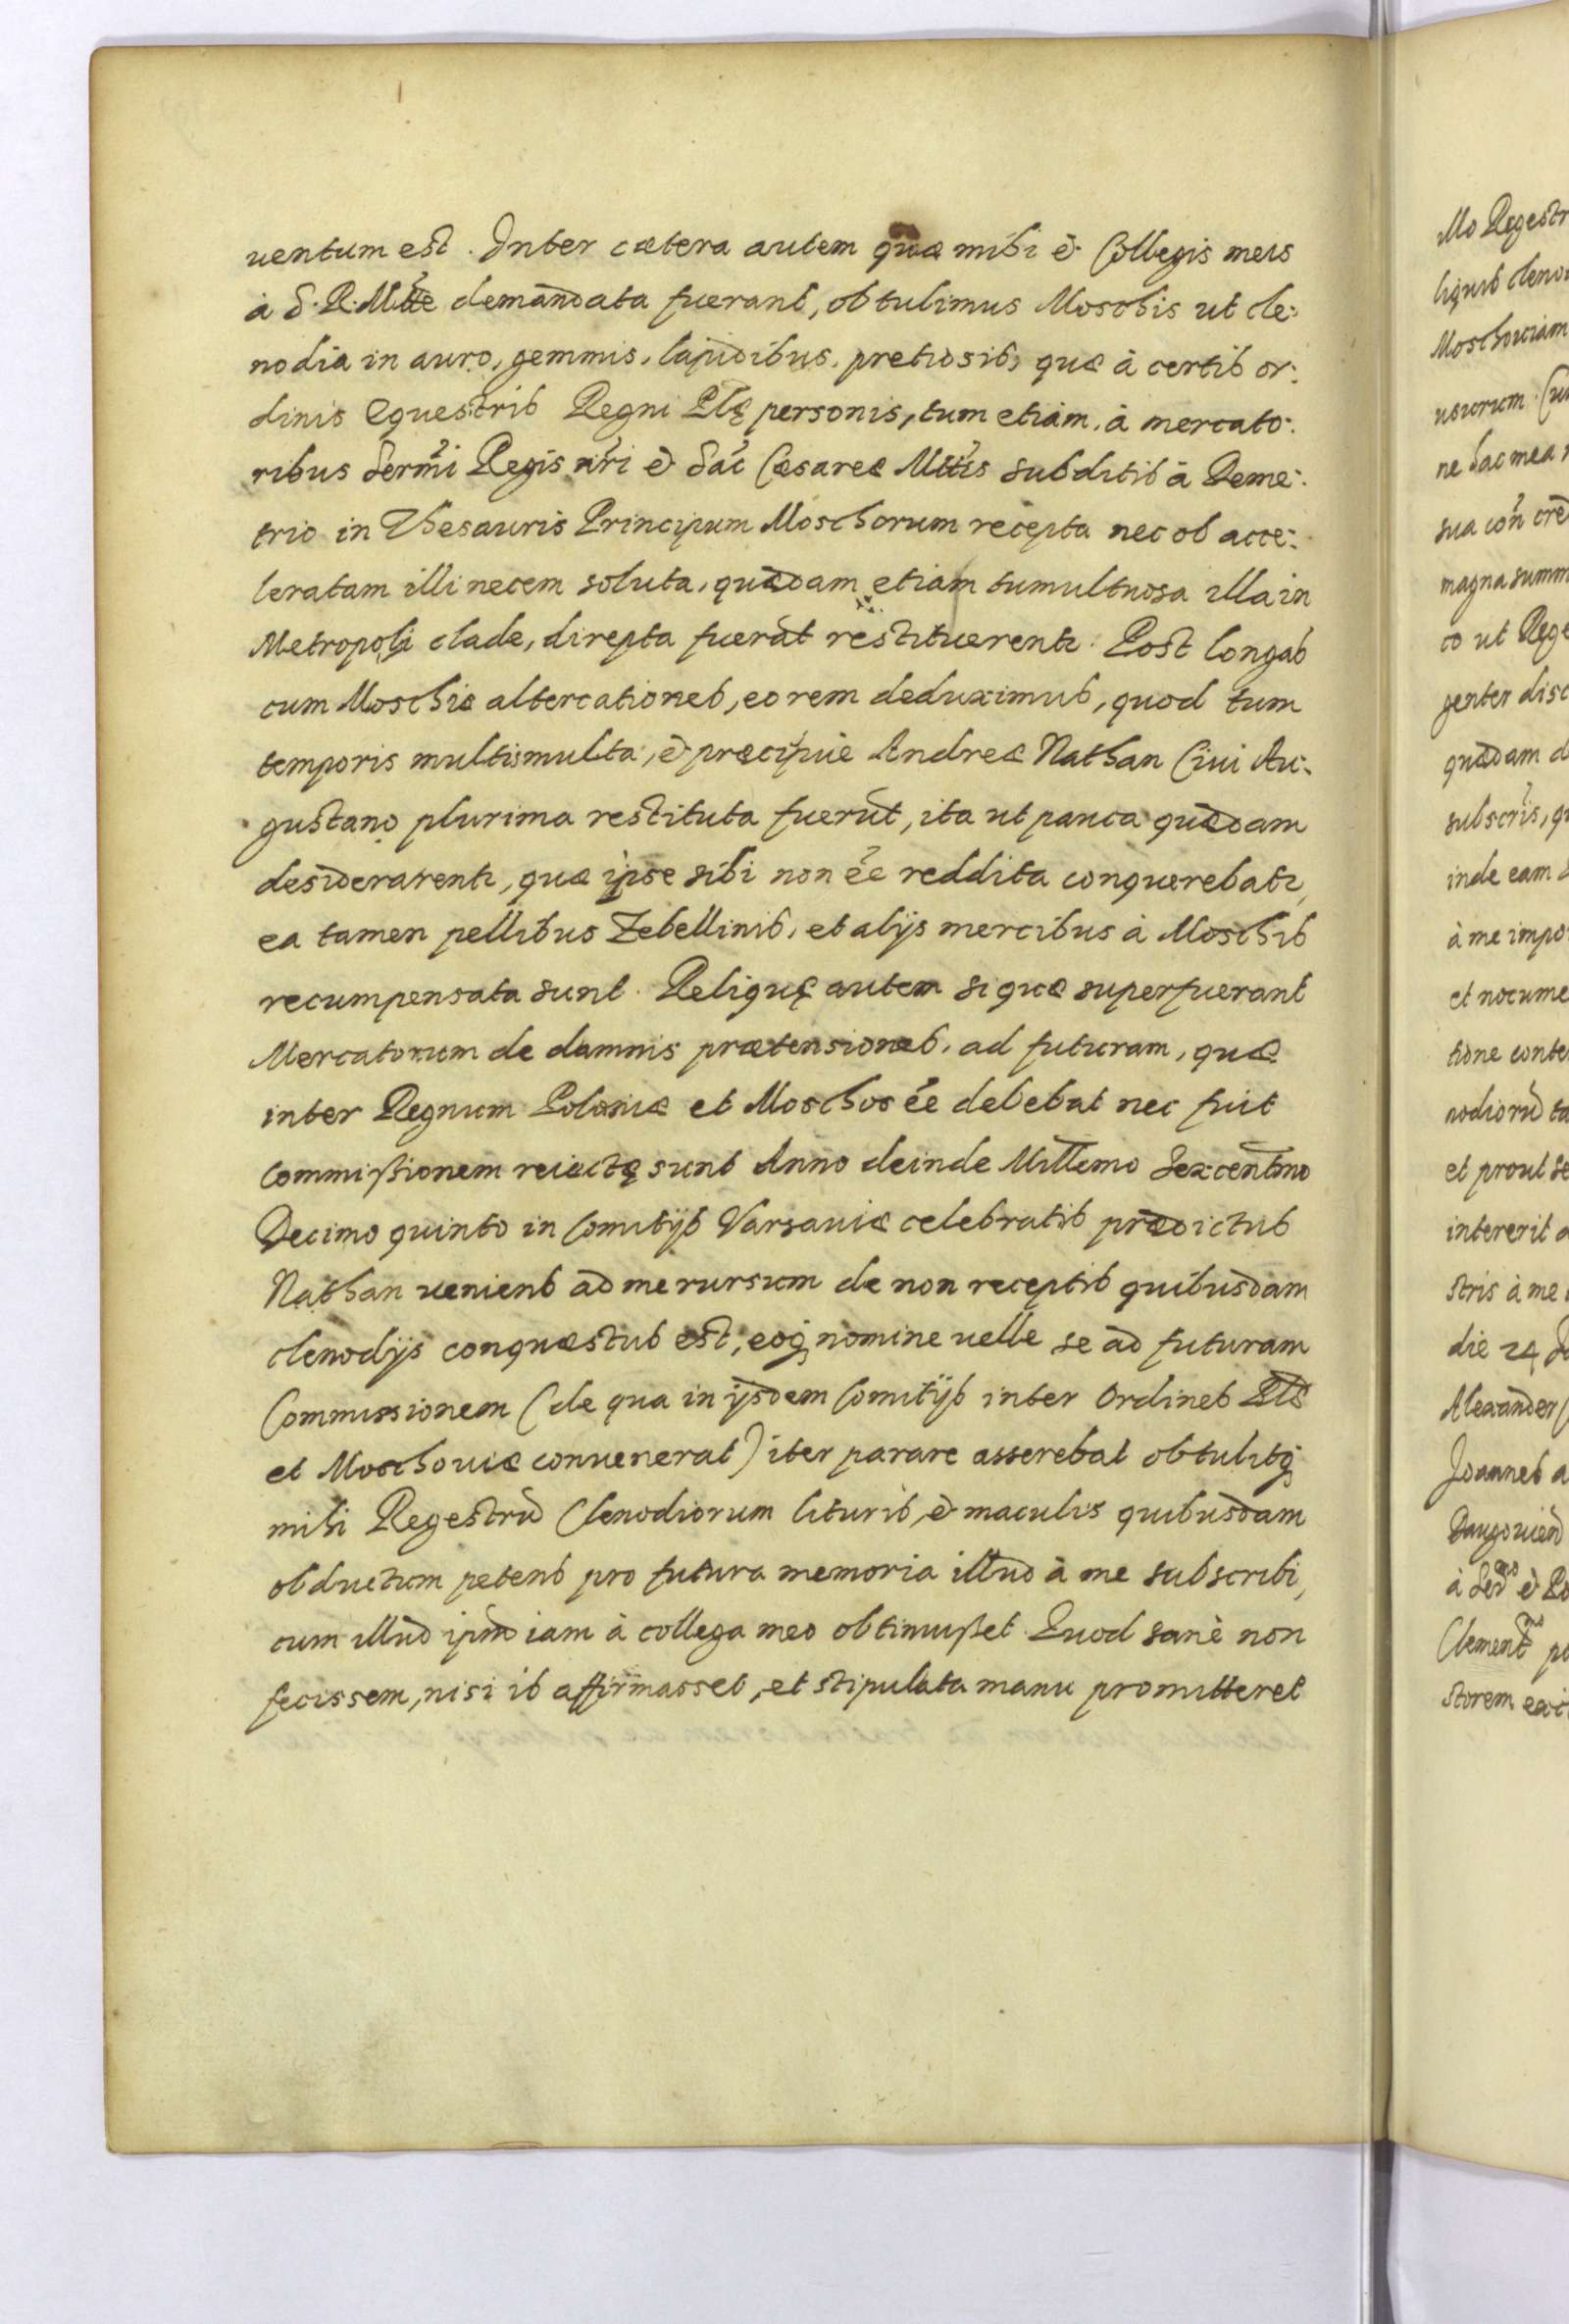 uentum est. Inter cætera autem quæ mihi & Collegis meis
à S. R. Mtte demandata fuerant, obtulimus Moschis ut cle:
nodia in auro, gemmis, lapidibus pretiosis, quæ à certis or:
dinis Equestris Regni Plę personis, tum etiam, à mercato:
ribus Sermi Regis nri & Sac Cæsareæ Mttis subditis à Deme:
trio in Thesauris Principum Moschorum recepta nec ob acce:
leratam illi necem soluta, quædam etiam tumultuosa illa in
Metropoli clade, direpta fuerāt restituerentr. Post longas
cum Moschis altercationes, eo rem deduximus, quod tum
temporis multis multa, & præcipuè Andreæ Nathan Ciui Au:
gustano plurima restituta fuerūt, ita ut pauca quædam
desiderarentr, quæ ipse sibi non ēe reddita conquerebatr,
ea tamen pellibus Zebellinis, et alijs mercibus à Moschis
recumpensata sunt. Reliquę autem si quæ superfuerant
Mercatorum de damnis prætensiones, ad futuram, quæ
inter Regnum Poloniæ et Moschos ēe debebat nec fuit
Commißionem reiectę sunt Anno deinde Millemo Sexcentmo
Decimo quinto in Comitijs Varsauiæ celebratis prædictus
Nathan ueniens ad me rursum de non receptis quibusdam
clenodijs conquæstus est, eoq nomine uelle se ad futuram
Commissionem (de qua in ijsdem Comitijs inter Ordines Plæ
et Moschouiæ conuenerat) iter parare asserebat obtulitq
mihi Regestrū Clenodiorum lituris, & maculis quibusdam
obductum petens pro futura memoria illud à me subscribi,
cum illud ipmd iam à collega meo obtinuißet. Quod sanè non
fecissem, nisi is affirmasset, et stipulata manu promitteret
Mo Regestr
liquis cleno
Moschouiam
usurum
ne hac mea
sua
magna summ
co ut Rege
genter disc
quædam d
subscris, q
inde eam
à me impo
et nocume
tione conte
nodiorū ta
et prout se
intererit a
stris à me
die 24
Alexander
Joannes a
à Serm & Po
Clement po
storem